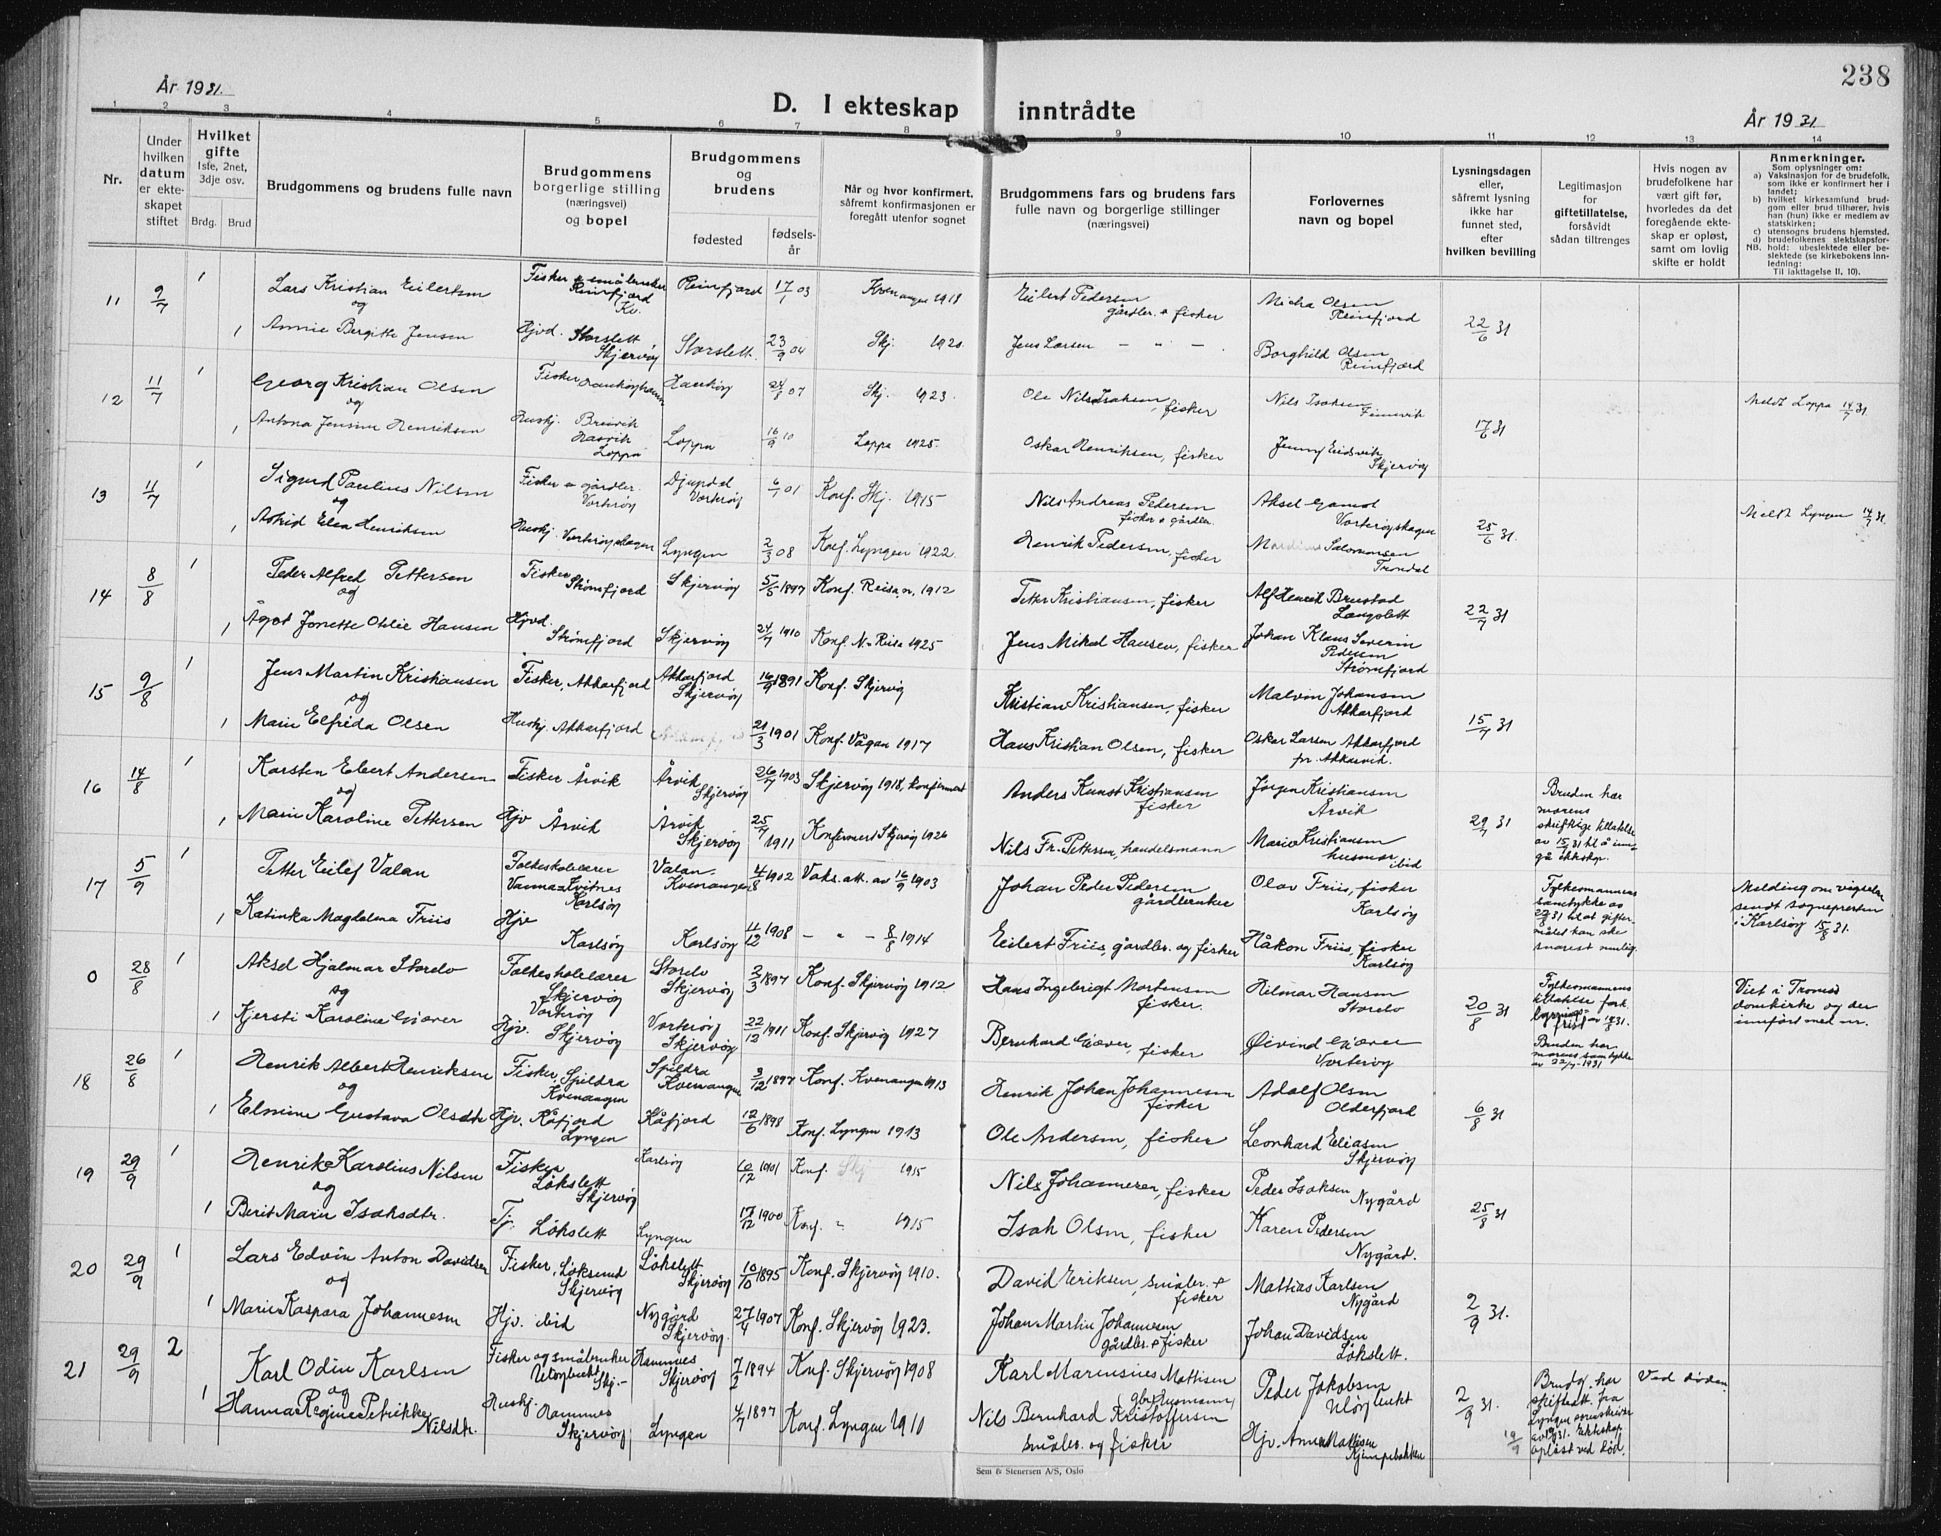 238
År 1931.
D. I ekteskap inntrådte
År 1931
1 2 3 4 5 6 7 8 9 10 11 12 13 14
Nr.
Under hvilken datum er ekteskapet stiftet
Hvilket gifte 1ste, 2net, 3dje osv.
Brdg. Brud
Brudgommens og brudens fulle navn
Brudgommens borgerlige stilling (næringsvei) og bopel
Brudgommens og brudens
fødested
fødsels-år
Når og hvor konfirmert, såfremt konfirmasjonen er foregått utenfor sognet
Brudgommens fars og brudens fars fulle navn og borgerlige stillinger (næringsvei)
Forlovernes navn og bopel
Lysningsdagen eller, såfremt lysning ikke har funnet sted, efter hvilken bevilling
Legitimasjon for giftetillatelse, forsåvidt sådan tiltrenges
Hvis nogen av brudefolkene har vært gift før, hvorledes da det foregående ekteskap er opløst, samt om lovlig skifte er holdt
Anmerkninger.
Som oplysninger om:
a) Vaksinasjon for de brudefolk, som ikke er konfirmert her i landet;
b) hvilket kirkesamfund brudgom eller brud tilhører, hvis han (hun) ikke er medlem av statskirken;
c) utensogns brudens hjemsted.
d) brudefolkenes slektskapsforhold: ubeslektede eller beslektede (se kirkebokens innledning:
NB.
Til iakttagelse II, 10).
11 9/7 1 Lars Kristian Eilertsen Fisker & småbruker Reinfjord Kv. Reinfjord 17/1 03 Kvenangen 1918 Eilert Pedersen gårdbr. & fisker Micha Olsen Reinfjord 22/6 31
og
1 Annie Bergitte Jensen Hjvd. Storslett Skjervöy Storslett 23/9 04 Skj. 1920 Jens Larsen – " – Borghild Olsen Reinfjord
12 11/7 1 Georg Kristian Olsen Fisker Haukøy 24/8 07 Skj. 1923. Ole Nils Isaksen, fisker Nils Isaksen 17/6 31 Meldt Loppa 14/7 31
og
1 Antona Jensine Henriksen Huskj. Breivik Hasvik Loppa Loppa 16/9 10 Loppa 1925. Oskar Henriksen, fisker Jenny Eidsvik Skjervöy
13 11/7 1 Sigurd Paulius Nilsen Fisker & gårdbr. Vorterøy Djupdal Vorterøy 6/1 01 Konf. Skj. 1915 Nils Andreas Pedersen fisker & gårdbr. Aksel Vorterøyskagen 25/6 31. Meldt Lyngen 14/7 31.
og
1 Astrid Elea Henriksen Huskj. Vorterøyskagen Lyngen 2/3 08 Konf. Lyngen 1922. Henrik Pedersen, fisker Salomonsen
14 8/8 1 Peder Alfred Pettersen Fisker Strömfjord Skjervöy 5/5 1897 Konf. Reisa, n. 1912 Petter Kristiansen, fisker Alf Henrik Brustad Langslett 22/7 31
og
1 Ågot Jonette Otilie Hansen Hjvd. Strömfjord Skjervöy 24/7 1910 Konf. N. Reisa 1925 Jens Mikal Hansen, fisker Johan Klaus Severin Pedersen Strömfjord
15 9/8 1 Jens Martin Kristiansen Fisker, Akkarfjord Akkarfjord Skjervöy 16/9 1891 Konf. Skjervöy Kristian Kristiansen, fisker Malvin Johansen Akkarfjord 15/7 31
og
1 Marie Elfrida Olsen Huskj. Akkarfjord 21/3 1901 Konf. Vågan 1917 Hans Kristian Olsen, fisker Oskar Larsen Akkarfjord pr. Akkarvik.
16 14/8 1 Karsten Ebert Andersen Fisker Årvik Årvik Skjervöy 26/7 1903 Skjervöy 1918, konfirmert Anders Kunst Kristiansen fisker Jörgen Kristiansen Årvik 29/7 31 Bruden har morens skriftlige tillatelse av 15/7 31 til å inngå ekteskap.
og
1 Marie Karoline Pettersen Hjv Årvik Årvik Skjervöy 25/7 1911 Konfirmert Skjervöy 1926 Nils Fr. Pettersen, handelsmann Marie Kristiansen husmor ibid
17 5/9 1 Petter Eilef Valan Folkeskolelærer Karlsöy Valan Kvenangen 4/8 1902 Vaks. att. av 16/9 1903 Johan Peder Pedersen gårdbruker Olav Friis, fisker Karlsöy Fylkesmannens samtykke av 29/8 31 til at giftermålet kan skje snarest mulig Melding om vigselen sendt sognepresten i Karlsöy 15/8 31.
1 Katinka Magdalena Friis Hjv Karlsöy Karlsöy 11/12 1908 – " – 8/8 1914 Eilert Friis, gårdbr. og fisker Håkon Friis, fisker Karlsöy
0 28/8 1 Aksel Hjalmar Storslo Folkeskolelærer Skjervöy Vorteröy Skjervöy 2/3 1897 Konf. Skjervöy 1912. Hans Ingebrigt Mortensen fisker. Hilmar Hansen 20/8 31 Fylkesmannens tillatelse fork. lysningsfrist av 18/8 31. Viet i Tromsö domkirke og der innført med nr.
og
1 Kjersti Karoline Giæver Hjv. Skjervöy Vorteröy Skjervöy 22/12 1911 Konf. Skjervöy 1927 Bernhard Giæver, fisker Øivind Giæver Vorteröy Bruden har morens samtykke av 22/7-1931
18 26/8 1 Henrik Albert Henriksen Fisker, Spildra Kvenangen Spildra Kvenangen 3/12 1897 Konf. Kvenangen 1913 Henrik Johan Johannesen fisker Adolf Olsen Olderfjord 6/8 31
og
1 Elmine Gustava Olsdtr Hjv. Kåfjord Lyngen Kåfjord 12/6 1898 Konf. Lyngen 1913 Ole Andersen, fisker Leonhard Eliasen Skjervöy
19 29/9 1 Henrik Karolius Nilsen Fisker Lökslett Skjervöy Karlsöy 10/12 1901 Konf. Skj 1915 Nils Johannesen, fisker Peder Isaksen Nygård 25/8 31
og
1 Berit Marie Isaksdtr. Tj. Lökslett Lyngen 17/12 1900 Konf. " 1915 Isak Olsen, fisker Karen Pedersen Nygård.
20 29/9 1 Lars Edvin Anton Davidsen Fisker, Löksund Skjervöy Lökslett Skjervöy 10/10 1895 Konf. Skjervöy 1910. David Eriksen, småbr. & fisker Mattias Karlsen Nygård 2/9 31.
og
1 Marie Kaspara Johannesen Hjv. ibid Nygård Skjervöy. 27/4 1907 Konf. Skjervöy 1923. Johan Martin Johannesen gårdbr. & fisker Johan Davidsen Lökslett.
21 29/9 2 Karl Odin Karlsen Fisker og småbruker Ulöybukt Skj. Hamnes Skjervöy 7/2 1894 Konf. Skjervöy 1908 Karl Marensius Mattisen Peder Jakobsen Ulöybukt 2/9 31. Brudg. har skifteatt. fra Lyngen sorenskriver av 19/9 31. Ekteskap opløst ved död. Ved döden
og
1 Hanna Regine Petrikke Nilsdtr. Huskj. Hamnes Skjervöy Lyngen 4/7 1897 Konf. Lyngen 1910 Nils Bernhard Kristoffersen småbr. og fisker Hjv. Anna Mattisen Kjempebakken
Sem & Stenersen A/S, Oslo